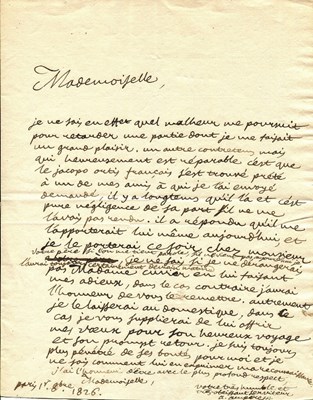 Mademoiselle,
je ne sais en effet quel malheur me poursuit
pour retarder une partie dont je me faisait
un grand plaisir. un autre contretems mais
qui heureusement est réparable c'est que
le jacopo ortis français s'est trouvé prêté
à un de mes amis à qui je l'ai envoyé
demander, il y a longtems qu'il l'a et c'est
pure négligence de sa part s'il ne me
l'avais pas rendu. il a répondu qu'il me
l'apporterait lui même aujourd'hui et
je le porterai ce soir chez monsieur
je ne sais si je ne dérangerai
pas Madame Cuvier en lui faisant
mes adieux, dans le cas contraire j'aurai
l'honneur de vous le remettre. autrement
je le laisserai au domestique, dans le
cas je vous supplierai de lui offrir
mes vœux pour son heureux voyage
et son prompt retour. je suis toujours
plus pénétré de ses bontés pour moi et je
ne sais comment lui en exprimer ma reconnaissance
j'ai l'honneur d'être avec le plus profond respect
Mademoiselle,
votre très humble et
très obéissant serviteur
a. ampère
paris 1er 8bre 1826.